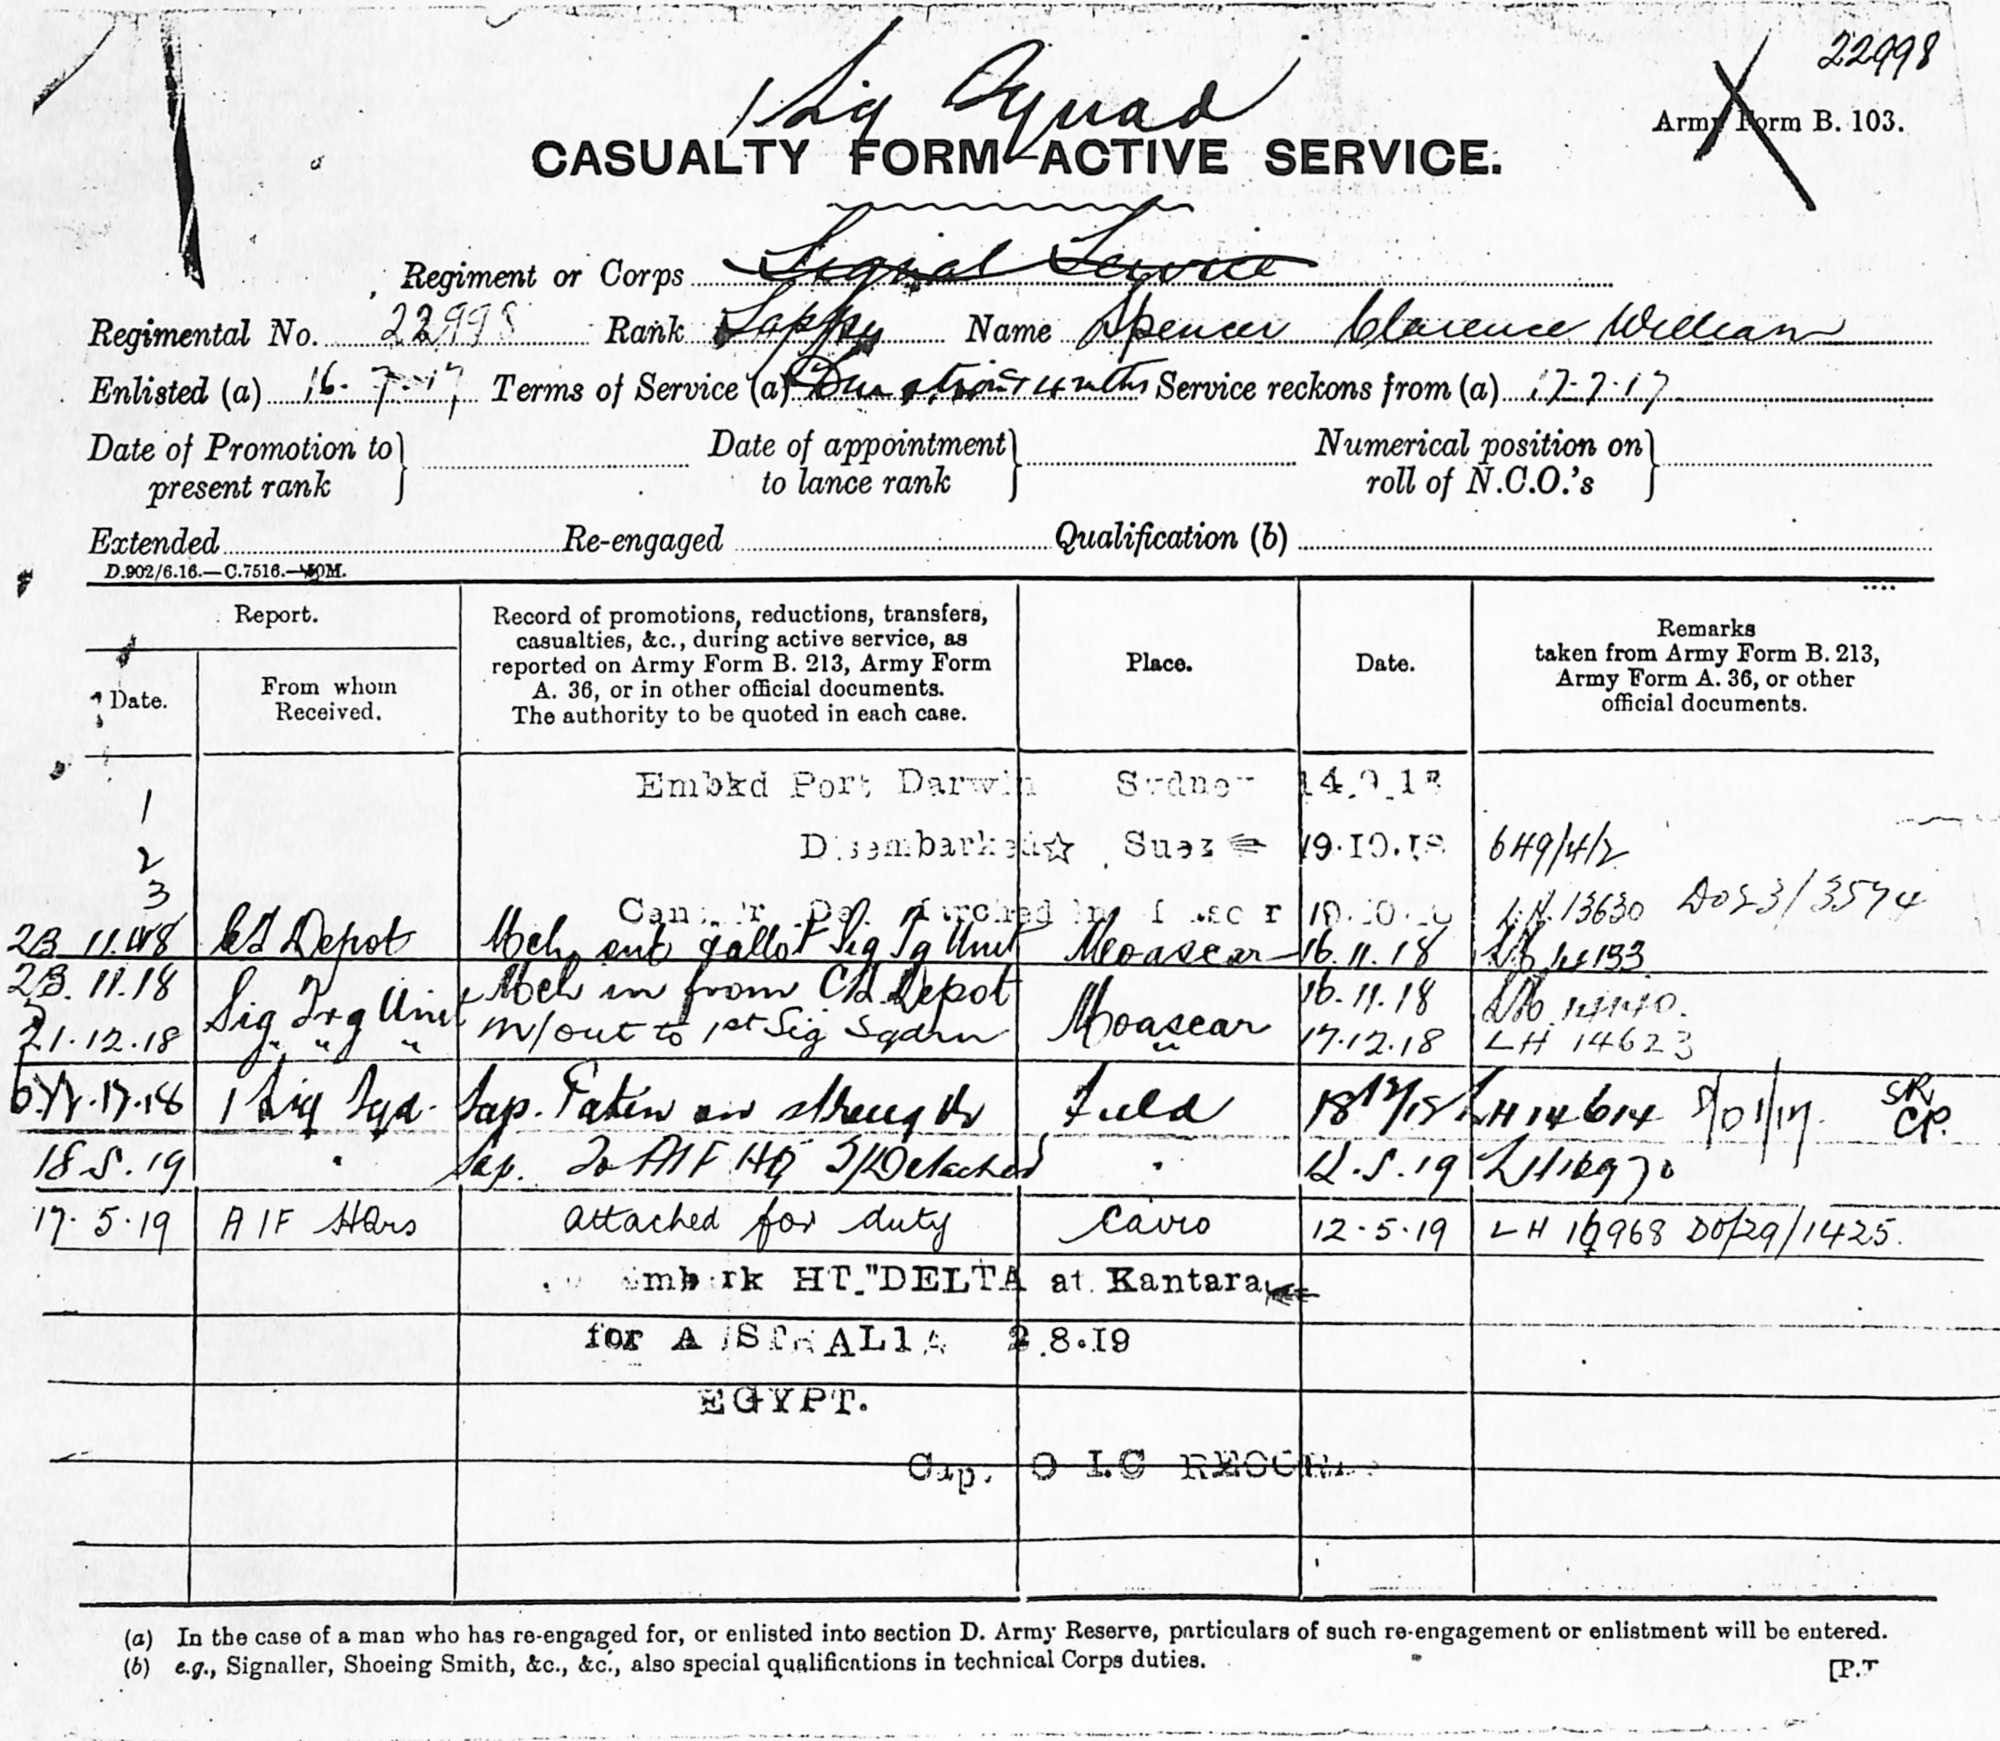 22998
1 Sig Squad
Army Form B. 103.
CASUALTY FORM—ACTIVE SERVICE.
Regiment or Corps Signal Service
Regimental No. 22998 Rank Sapper Name Spencer Clarence William
Enlisted (a) 16-7-17 Terms of Service (a) Service reckons from (a) 17-7-17
Date of Promotion to present rank Date of appointment to lance rank Numerical position on roll of N.C.O.'s
Extended Re-engaged Qualification (b)
D.902/6.16.—C.7516.—
Report.
Date.
From whom Received.
Record of promotions, reductions, transfers,
casualties, &c., during active service, as
reported on Army Form B. 213, Army Form
A. 36, or in other official documents.
The authority to be quoted in each case.
Place.
Date.
Remarks
taken from Army Form B. 213,
Army Form A. 36, or other
official documents.
1 Embkd Port Darwin Sydney 14.9.18
2 Disembarked Suez 19.10.18 649/4/2
3 13630 3574
23 11.18 Depot Mch out Sig Tg Unit Moascar 16.11.18
23.11.18 Sig Trg Unit Mch in from Depot Moascar 16.11.18
21.12.18 " " " M/out to 1st Sig Sqdrn " 17.12.18 LH 14623
1 Sig Sqd. Sap. Taken on strength Field LH 14614 SR
CP.
18 5.19 " Sap. To AIF HQ Detached " 12.5.19 LH 16970
17.5.19 AIF HQrs attached for duty Cairo 12-5-19 LH 16968 DO/29/1425.
Embark HT."DELTA at Kantara
for AUSTRALIA 2.8.19
EGYPT.
Cap. O I.C RECORDS
(a) In the case of a man who has re-engaged for, or enlisted into section D. Army Reserve, particulars of such re-engagement or enlistment will be entered.
(b) e.g., Signaller, Shoeing Smith, &c., &c., also special qualifications in technical Corps duties.
[P.T